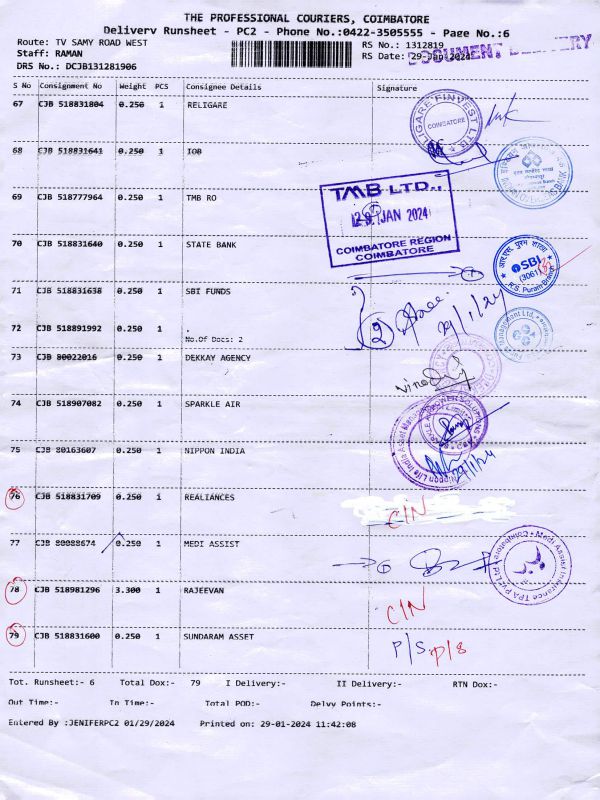 THE PROFESSIONAL COURIERS, COIMBATORE
Delivery Runsheet - PC2 - Phone No.:0422-3505555 - Page No.:6
Route: TV SAMY ROAD WEST
RS No.: 1312819
Staff: RAMAN
RS Date: 29-Jan-2024
DOCUMENT DELIVERY
DRS No.: DCJB131281906
S No Consignment No Weight PCS Consignee Details Signature
67 CJB 518831804 0.250 1 RELIGARE
RELIGARE FINVEST LTD
COIMBATORE
68 CJB 518831641 0.250 1 IOB
69 CJB 518777964 0.250 1 TMB RO
TMB LTD.,
29 JAN 2024
COIMBATORE REGION
COIMBATORE
70 CJB 518831640 0.250 1 STATE BANK
SBI
R.S. Puram Branch
71 CJB 518831638 0.250 1 SBI FUNDS
2
29/1/24
72 CJB 518891992 0.250 1 .
No.Of Docs: 2
73 CJB 80022016 0.250 1 DEKKAY AGENCY
74 CJB 518907082 0.250 1 SPARKLE AIR
75 CJB 80163607 0.250 1 NIPPON INDIA
29/1/24
76 CJB 518831709 0.250 1 REALIANCES
C/N
77 CJB 80088674 0.250 1 MEDI ASSIST
Medi Assist Insurance TPA Pvt Ltd Coimbatore
78 CJB 518981296 3.300 1 RAJEEVAN
C/N
79 CJB 518831600 0.250 1 SUNDARAM ASSET
P/S P/S
Tot. Runsheet:- 6 Total Dox:- 79 I Delivery:- II Delivery:- RTN Dox:-
Out Time:- In Time:- Total POD:- Delvy Points:-
Entered By :JENIFERPC2 01/29/2024 Printed on: 29-01-2024 11:42:08